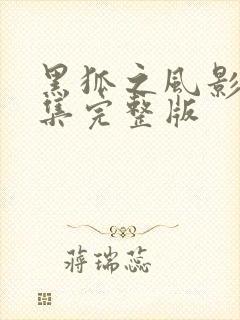 黑狐之风影
集完整版
蒋瑞蕊